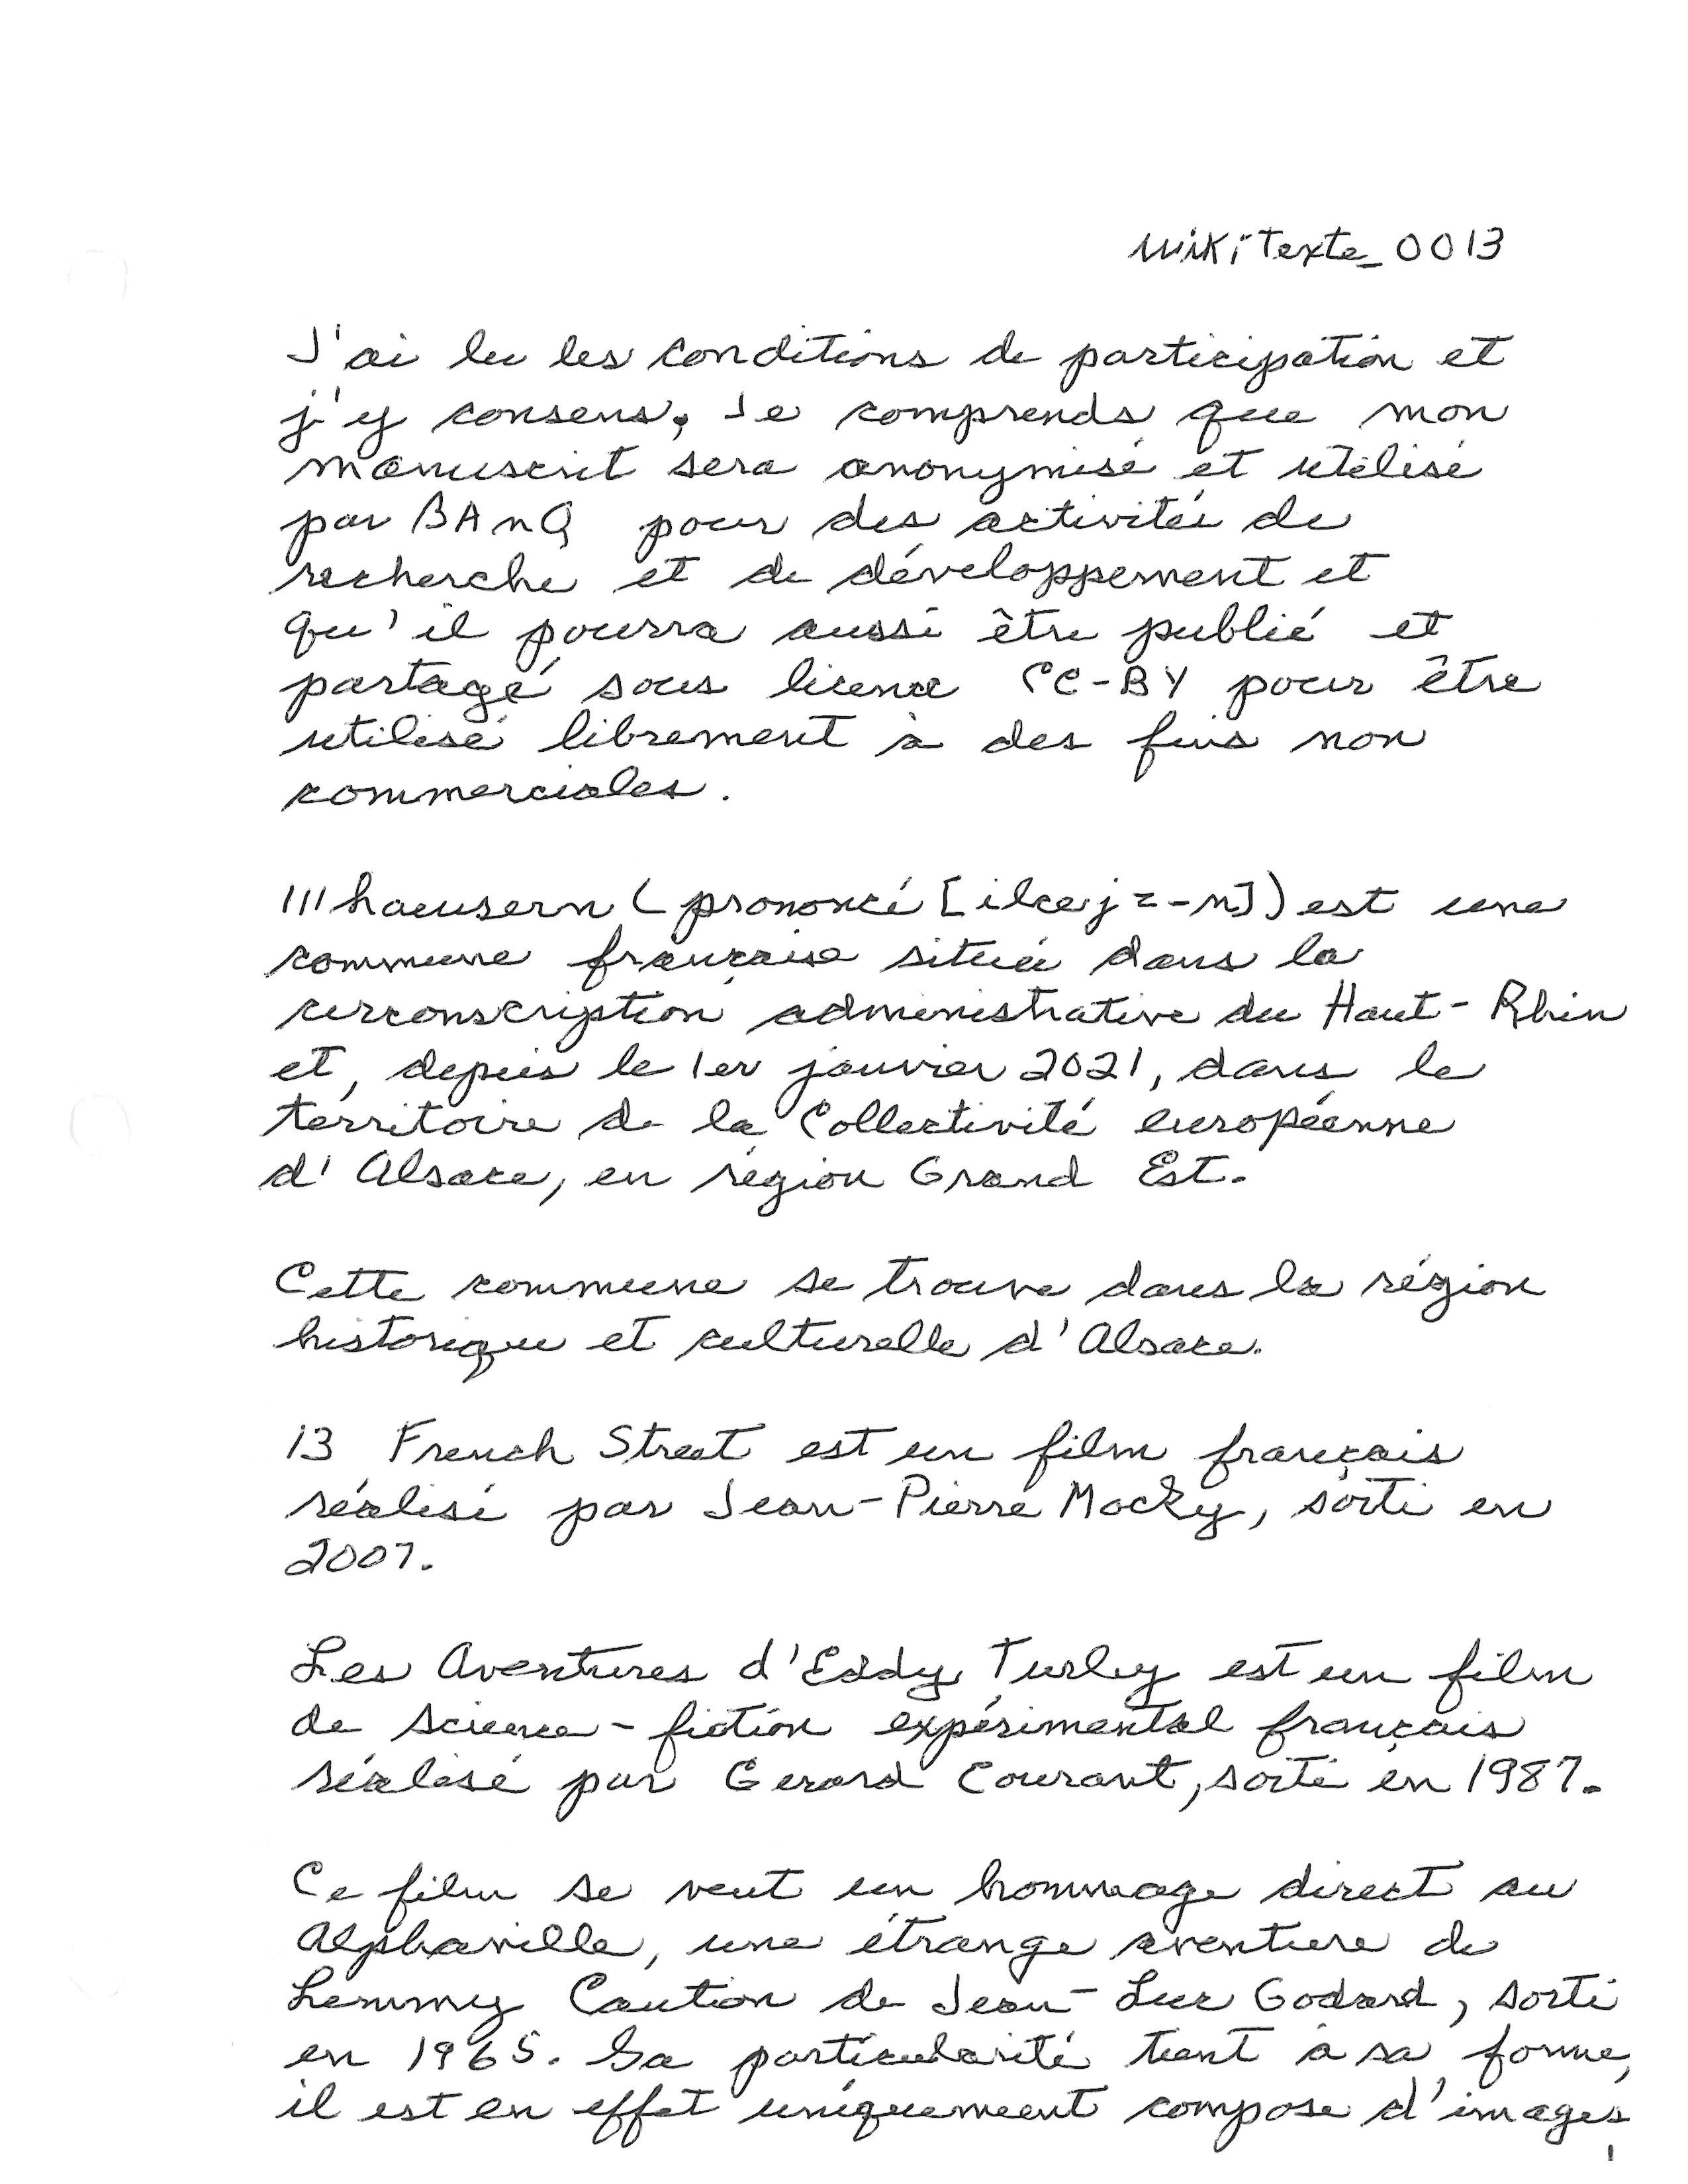 WikiTexte_0013
J'ai lu les conditions de participation et
j'y consens. Je comprends que mon
manuscrit sera anonymisé et utilisé
par BAnQ pour des activités de
recherche et de développement et
qu'il pourra aussi être publié et
partagé sous licence CC-BY pour être
utilisé librement à des fins non
commerciales.
Illhaeusern (prononcé [ilœjz-n]) est une
commune française située dans la
circonscription administrative du Haut-Rhin
et, depuis le 1er janvier 2021, dans le
territoire de la Collectivité européenne
d'Alsace, en région Grand Est.
Cette commune se trouve dans la région
historique et culturelle d'Alsace.
13 French Street est un film français
réalisé par Jean-Pierre Mocky, sorti en
2007.
Les Aventures d'Eddy Turley est un film
de science-fiction expérimental français
réalisé par Gerard Courant, sorti en 1987.
Ce film se veut un hommage direct au
Alphaville, une étrange aventure de
Lemmy Caution de Jean-Luc Godard, sorti
en 1965. Sa particularité tient à sa forme,
il est en effet uniquement composé d'images